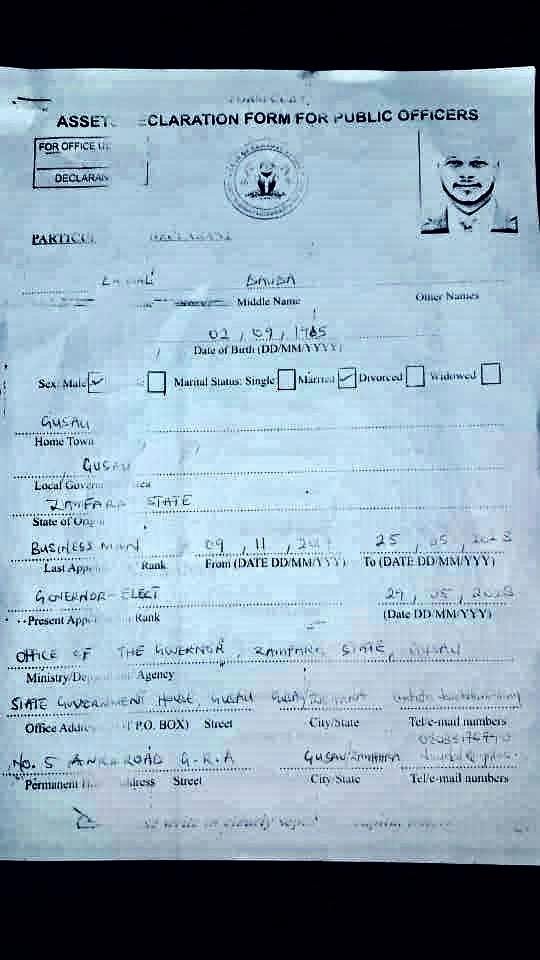 ASSET CLARATION FORM FOR PUBLIC OFFICERS
FOR OFFICE U
DECLARAN
PARTICU
LAWAL DAUDA
Middle Name Other Names
02, 09, 1965
Date of Birth (DD/MM/YYYY)
Sex: Male Marital Status: Single Married Divorced Widowed
GUSAU
Home Town
GUSAU
Local Govern ea
ZAMFARA STATE
State of Orig
BUSINESS MAN 09, 11, 25, 05, 2023
Last App Rank From (DATE DD/MM/YYY) To (DATE DD/MM/YYY)
GOVERNOR-ELECT 29, 05, 2023
Present App Rank (Date DD/MM/YYY)
OFFICE OF THE GOVERNOR, ZAMFARA STATE, GUSAU
Ministry/De Agency
STATE GOVERNMENT HOUSE GUSAU
Office Addre P.O. BOX) Street City/State Tel/e-mail numbers
NO. 5 ROAD G.R.A GUSAU/ZAMFARA
Permanent H dress Street City/State Tel/e-mail numbers